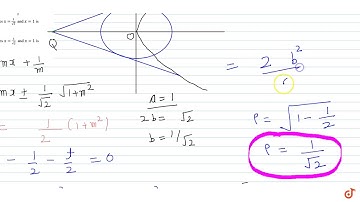 is x = 1/√2 and x = 1 is
Q
O
mx + 1/m
mx ± 1/√2 √(1+m²)
= 1/2 (1+m²)
- 1/2 - t/2 = 0
a = 1
2b = √2
b = 1/√2
= 2 b²
e = √(1 - 1/2)
e = 1/√2